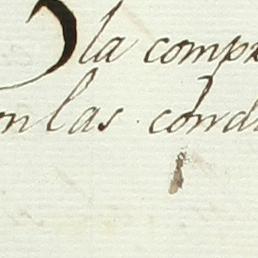 la comp
on las cond